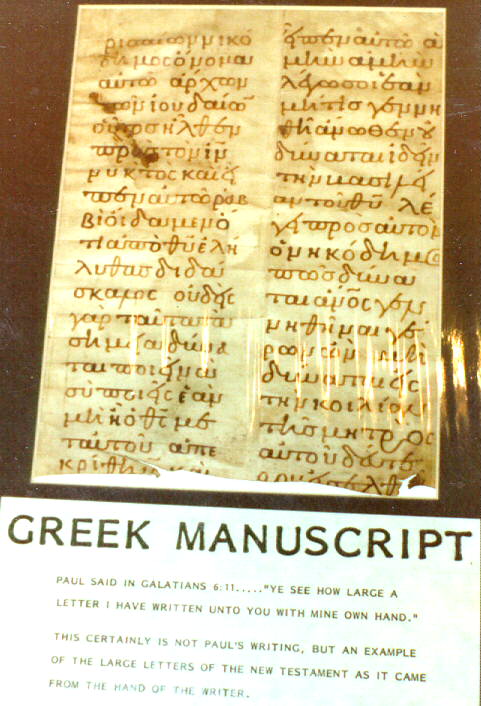 ρισαίων νικό
δημος ὄνομα
αὐτῶ ἄρχων
τῶν ἰουδαίω
οὗτος ἦλθεν
πρὸς τὸν ιν
νυκτὸς καὶ εἶ
πεν αὐτῶ ραβ
βὶ οἴδαμεν ὅ
τι ἀπὸ θυ ἐλή
λυθας διδά
σκαλος οὐδεὶς
γὰρ ταῦτα τὰ
σημεῖα δύνα
ται ποιεῖν ἃ
σὺ ποιεῖς ἐὰν
μὴ ἦ ὁ θς με
τ αὐτοῦ ἀπε
κρίθη καὶ
εἶπεν αὐτῶ ἀ
μὴν ἀμὴν
λέγω σοι ἐὰν
μή τις γεννη
θῆ ἄνωθεν οὐ
δύναται ἰδεῖν
τὴν βασιλεί
αν τοῦ θυ λέ
γει πρὸς αὐτὸν
ὁ νηκόδημος
πῶς δύνα
ται ἄνος γεν
νηθῆναι γέ
ρων ὢν μὴ
δύναται εἰς
τὴν κοιλίαν
τῆς μητρὸς
αὐτοῦ δεύτε
GREEK MANUSCRIPT
PAUL SAID IN GALATIANS 6:11....."YE SEE HOW LARGE A
LETTER I HAVE WRITTEN UNTO YOU WITH MINE OWN HAND."
THIS CERTAINLY IS NOT PAUL'S WRITING, BUT AN EXAMPLE
OF THE LARGE LETTERS OF THE NEW TESTAMENT AS IT CAME
FROM THE HAND OF THE WRITER.